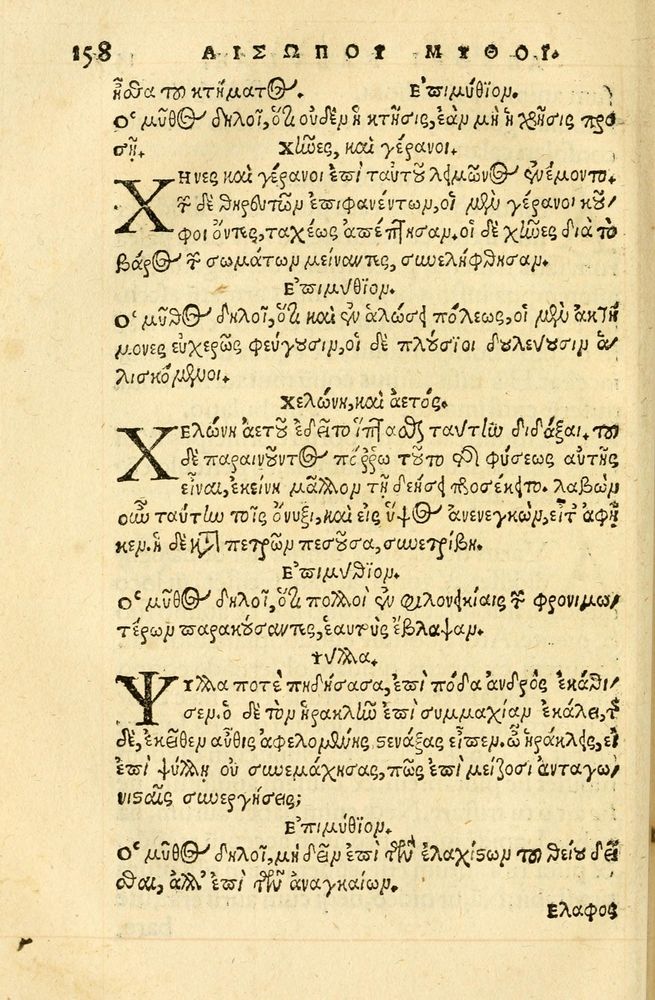 158 ΑΙΣΩΠΟΥ ΜΥΘΟΙ.
ἦσθα τοῦ κτήματος. Επιμύθιον.
Ο μῦθος δηλοῖ, ὅτι οὐδὲν ἡ κτῆσις, ἐὰν μὴ ἡ χρῆσις προ
σῇ. Χῆνες, καὶ γέρανοι.
ΧΗνες καὶ γέρανοι ἐπὶ ταὐτοῦ λειμῶνος ἐνέμοντο.
τῶν δὲ θηρευτῶν ἐπιφανέντων, οἱ μὲν γέρανοι κοῦ
φοι ὄντες, ταχέως ἀπέπτησαν. οἱ δὲ χῆνες διὰ τὸ
βάρος τῶν σωμάτων μείναντες, συνελήφθησαν.
Επιμύθιον.
Ο μῦθος δηλοῖ, ὅτι καὶ ἐν ἁλώσει πόλεως, οἱ μὲν ἀκτή
μονες εὐχερῶς φεύγουσιν, οἱ δὲ πλούσιοι δουλεύουσιν ἁ
λισκόμενοι.
Χελώνη, καὶ ἀετός.
ΧΕλώνη ἀετοῦ ἐδεῖτο ἵπτασθαι ταύτην διδάξαι. τοῦ
δὲ παραινοῦντος πόῤῥω τοῦτο τῆς φύσεως αὐτῆς
εἶναι, ἐκείνη μᾶλλον τῇ δεήσει προσέκειτο. λαβὼν
οὖν ταύτην τοῖς ὄνυξι, καὶ εἰς ὕψος ἀνενεγκὼν, εἶτ' ἀφῆ
κεν. ἡ δὲ κατὰ πετρῶν πεσοῦσα, συνετρίβη.
Επιμύθιον.
Ο μῦθος δηλοῖ, ὅτι πολλοὶ ἐν φιλονεικίαις τῶν φρονιμω
τέρων παρακούσαντες, ἑαυτοὺς ἔβλαψαν.
Ψύλλα.
ΨΥλλα ποτὲ πηδήσασα, ἐπὶ πόδα ἀνδρὸς ἐκάθι
σεν. ὁ δὲ τὸν ἡρακλῆν ἐπὶ συμμαχίαν ἐκάλει, τῆς
δὲ, ἐκεῖθεν αὖθις ἀφελομένης, στενάξας εἶπεν. ὦ ἡράκλεις, εἰ
ἐπὶ ψύλλῃ οὐ συνεμάχησας, πῶς ἐπὶ μείζοσι ἀνταγω
νισταῖς συνεργήσεις;
Επιμύθιον.
Ο μῦθος δηλοῖ, μὴ δεῖν ἐπὶ τῶν ἐλαχίστων τοῦ θείου δεῖ
σθαι, ἀλλ' ἐπὶ τῶν ἀναγκαίων.
Ελαφος